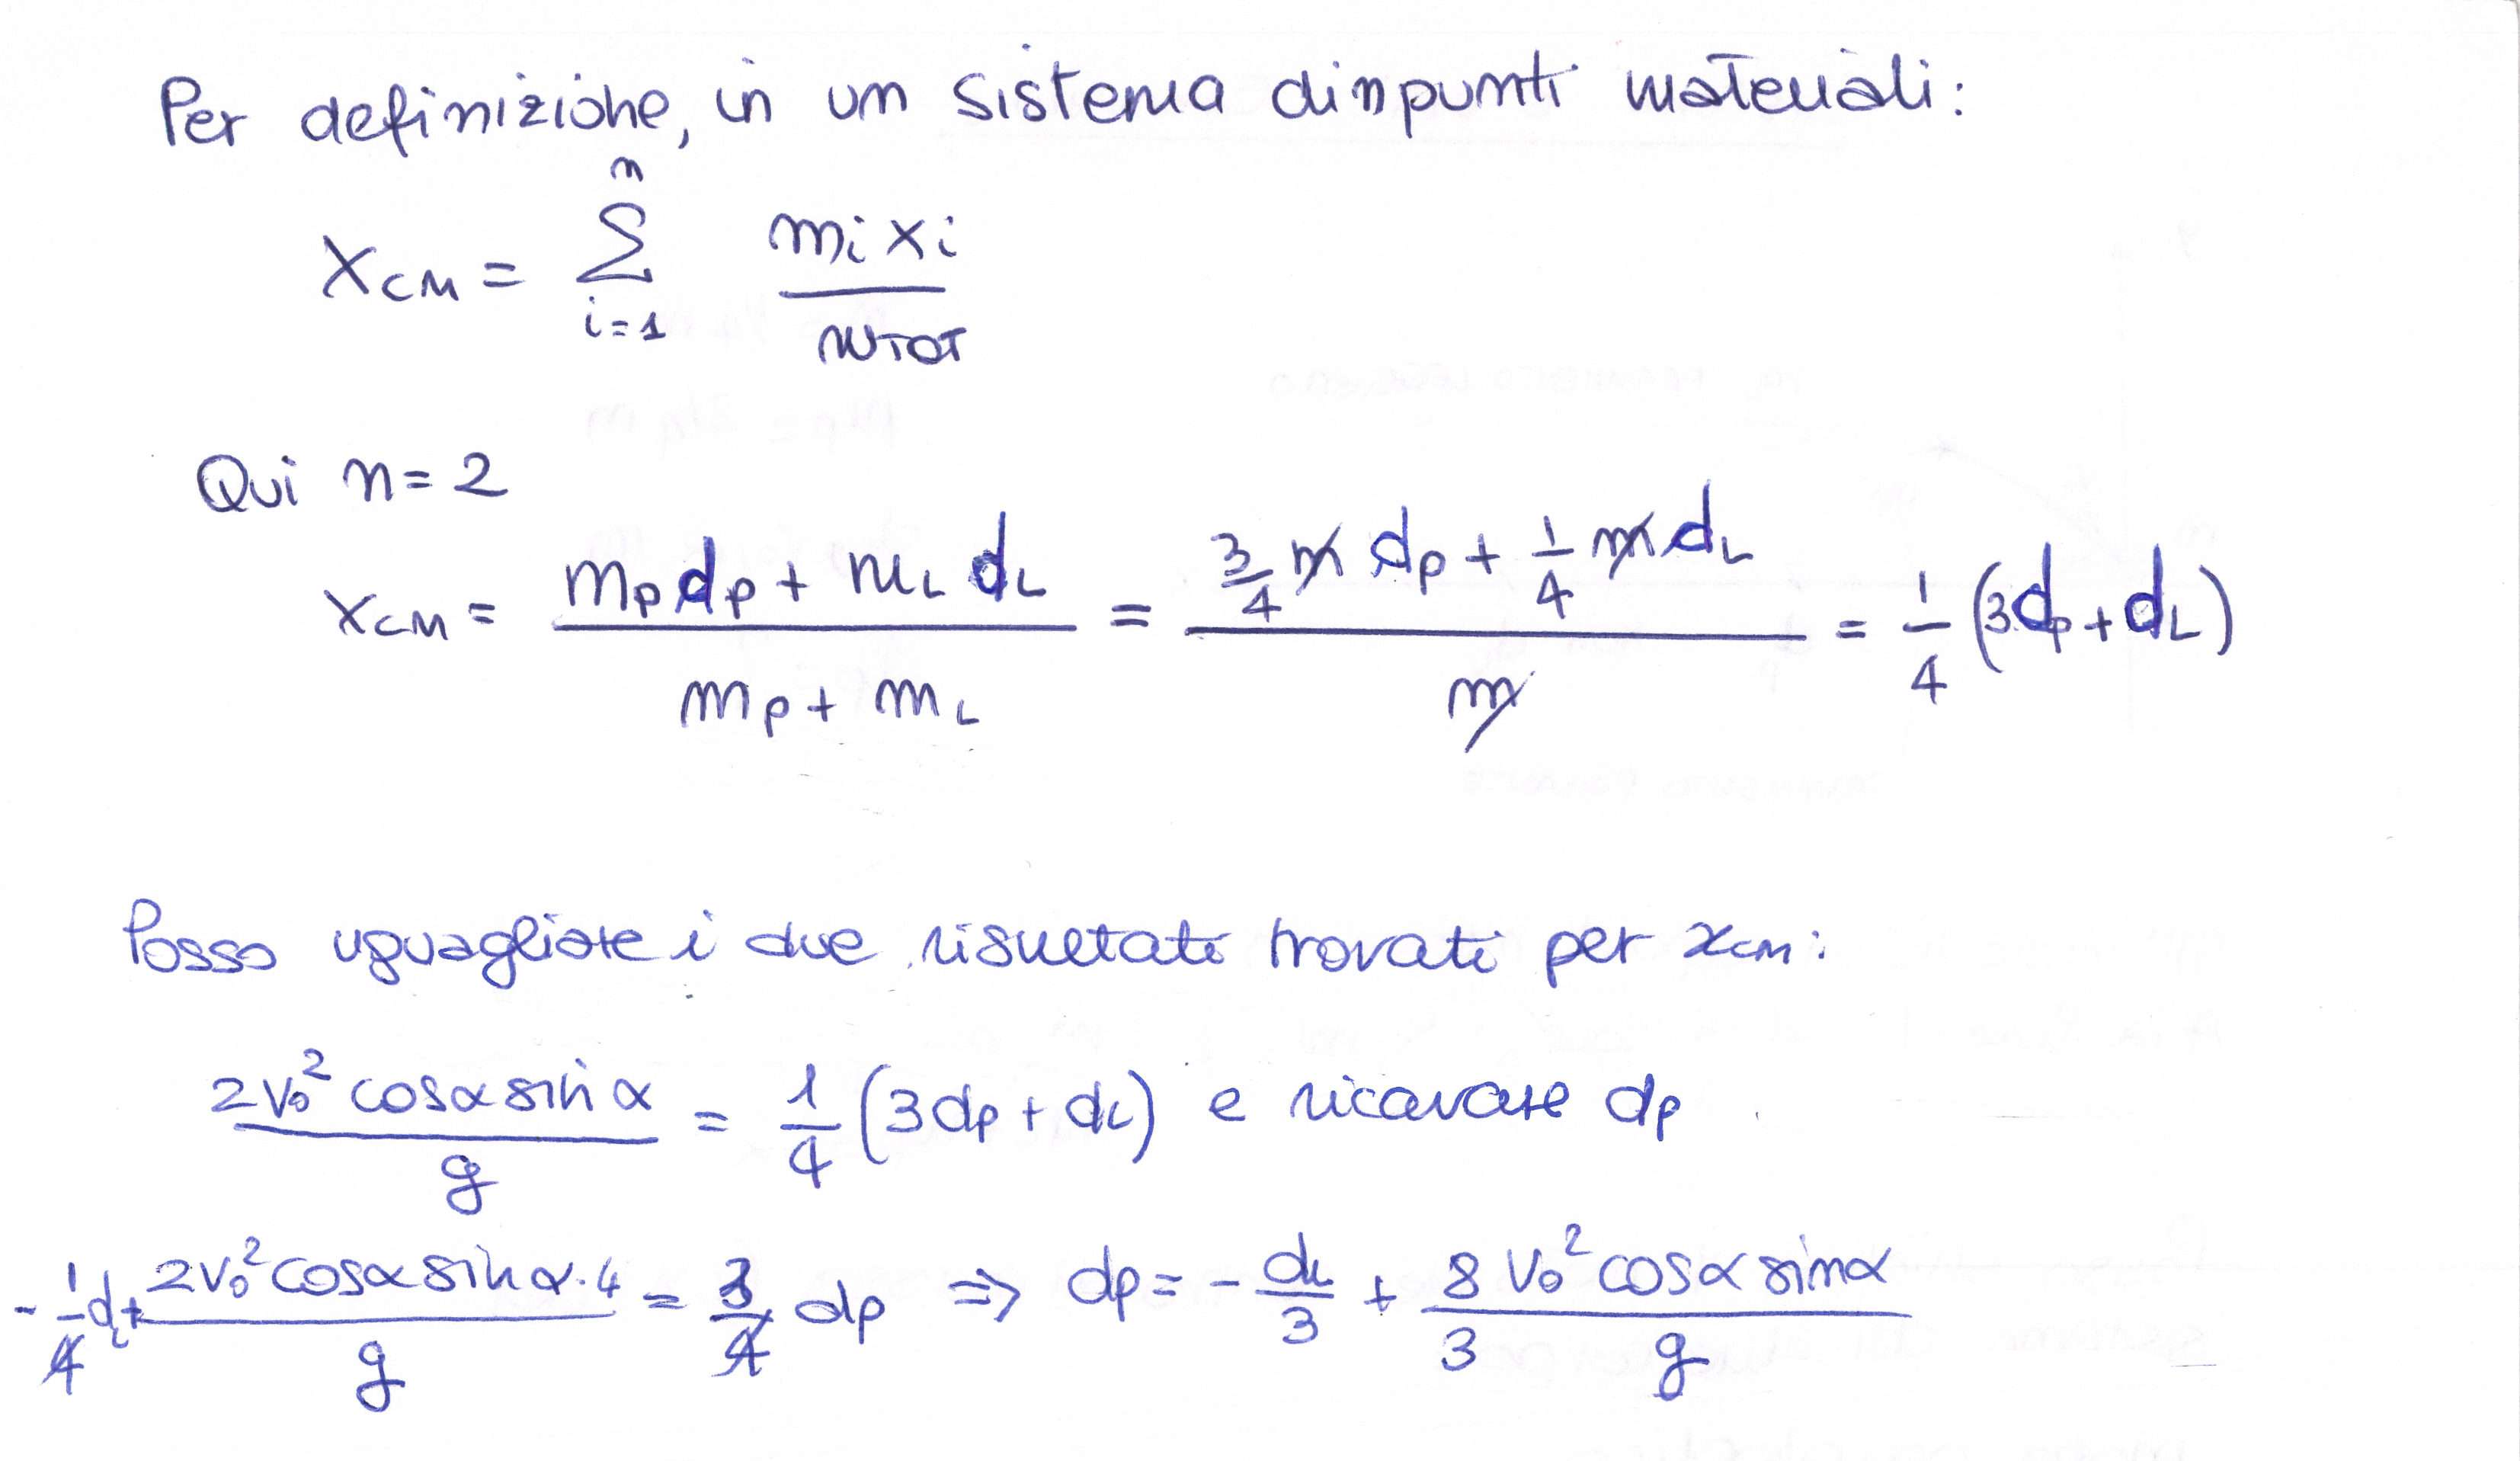 Per definizione, in un sistema di n punti materiali:
x_CM = Σ_{i=1}^{n} (m_i x_i) / m_TOT
Qui n = 2
x_CM = (m_P d_P + m_L d_L) / (m_P + m_L) = (3/4 m d_P + 1/4 m d_L) / m = 1/4 (3d_P + d_L)
Posso uguagliare i due risultati trovati per x_CM:
(2 v_0² cosα sinα) / g = 1/4 (3d_P + d_L) e ricavare d_P
- 1/4 d_L + (2 v_0² cosα sinα · 4) / g = 3/4 d_P ⇒ d_P = - d_L/3 + 8/3 (v_0² cosα sinα) / g